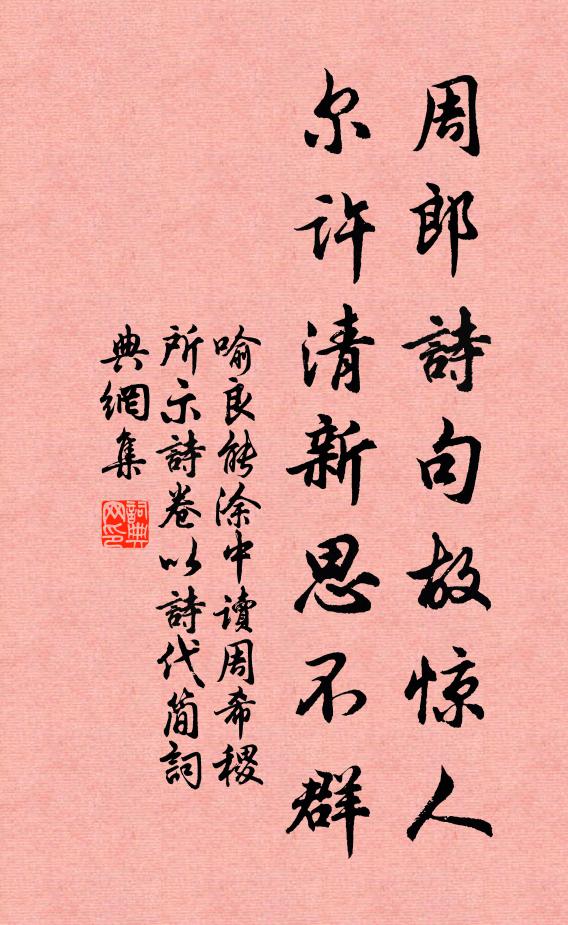 周郎詩句故惊人
尔许清新思不群
喻良能涂中讀周希稷
所示詩卷以詩代简詞
典網集
詞典网印